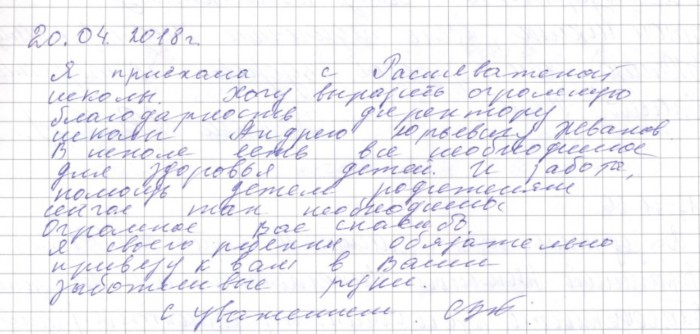 20.04.2018г.
Я приехала с
школы. Хочу выразить огромную
благодарность директору
школы Андрею Юрьевичу
В школе есть все необходимое
для здоровья детей. И забота,
помощь детям родителям
сейчас так необходимы
Огромное Вас спасибо.
Я своего обязательно
привезу к вам в Ваши
заботливые руки.
С уважением